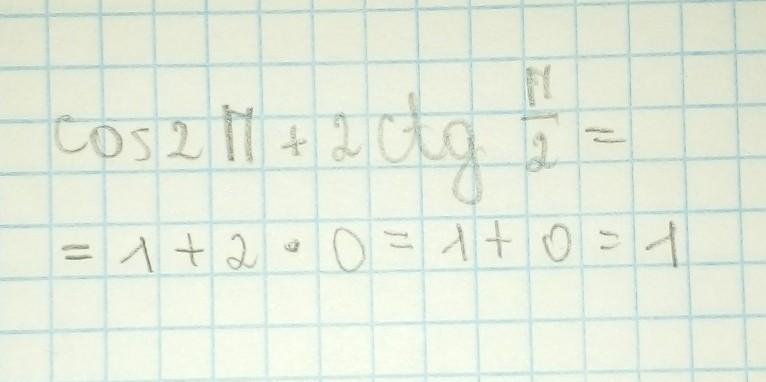 cos 2π + 2 ctg π/2 =
= 1 + 2 · 0 = 1 + 0 = 1